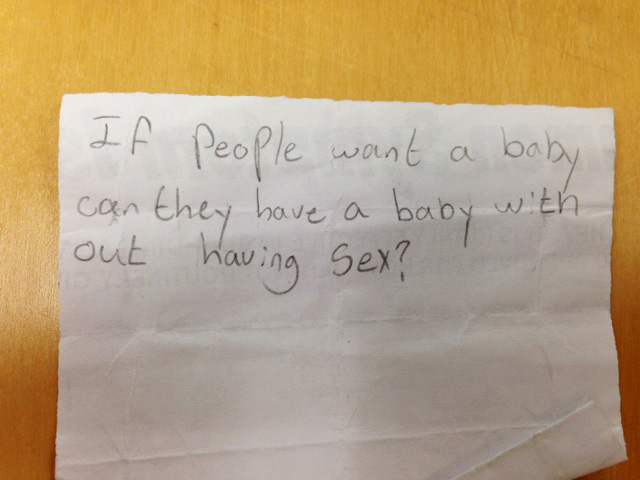 If people want a baby
can they have a baby with
out having sex?